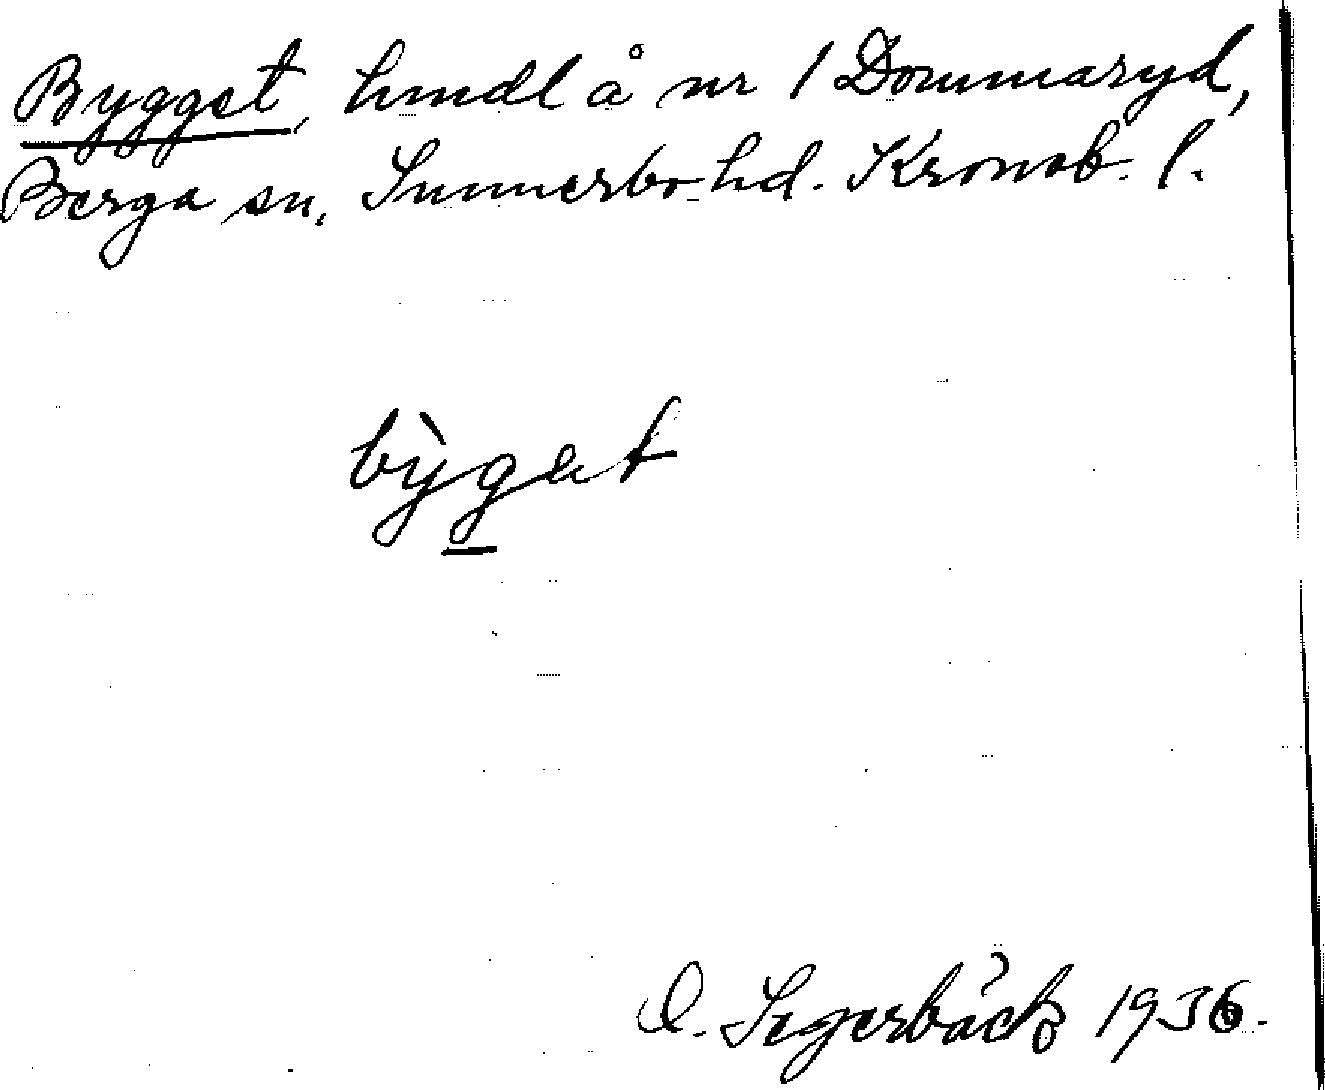 Bygget, hmdl å nr 1 Dommaryd,
Berga sn, Sunnerbo hd. Kronob. l.
bỳget
O. Segerbäck 1936.